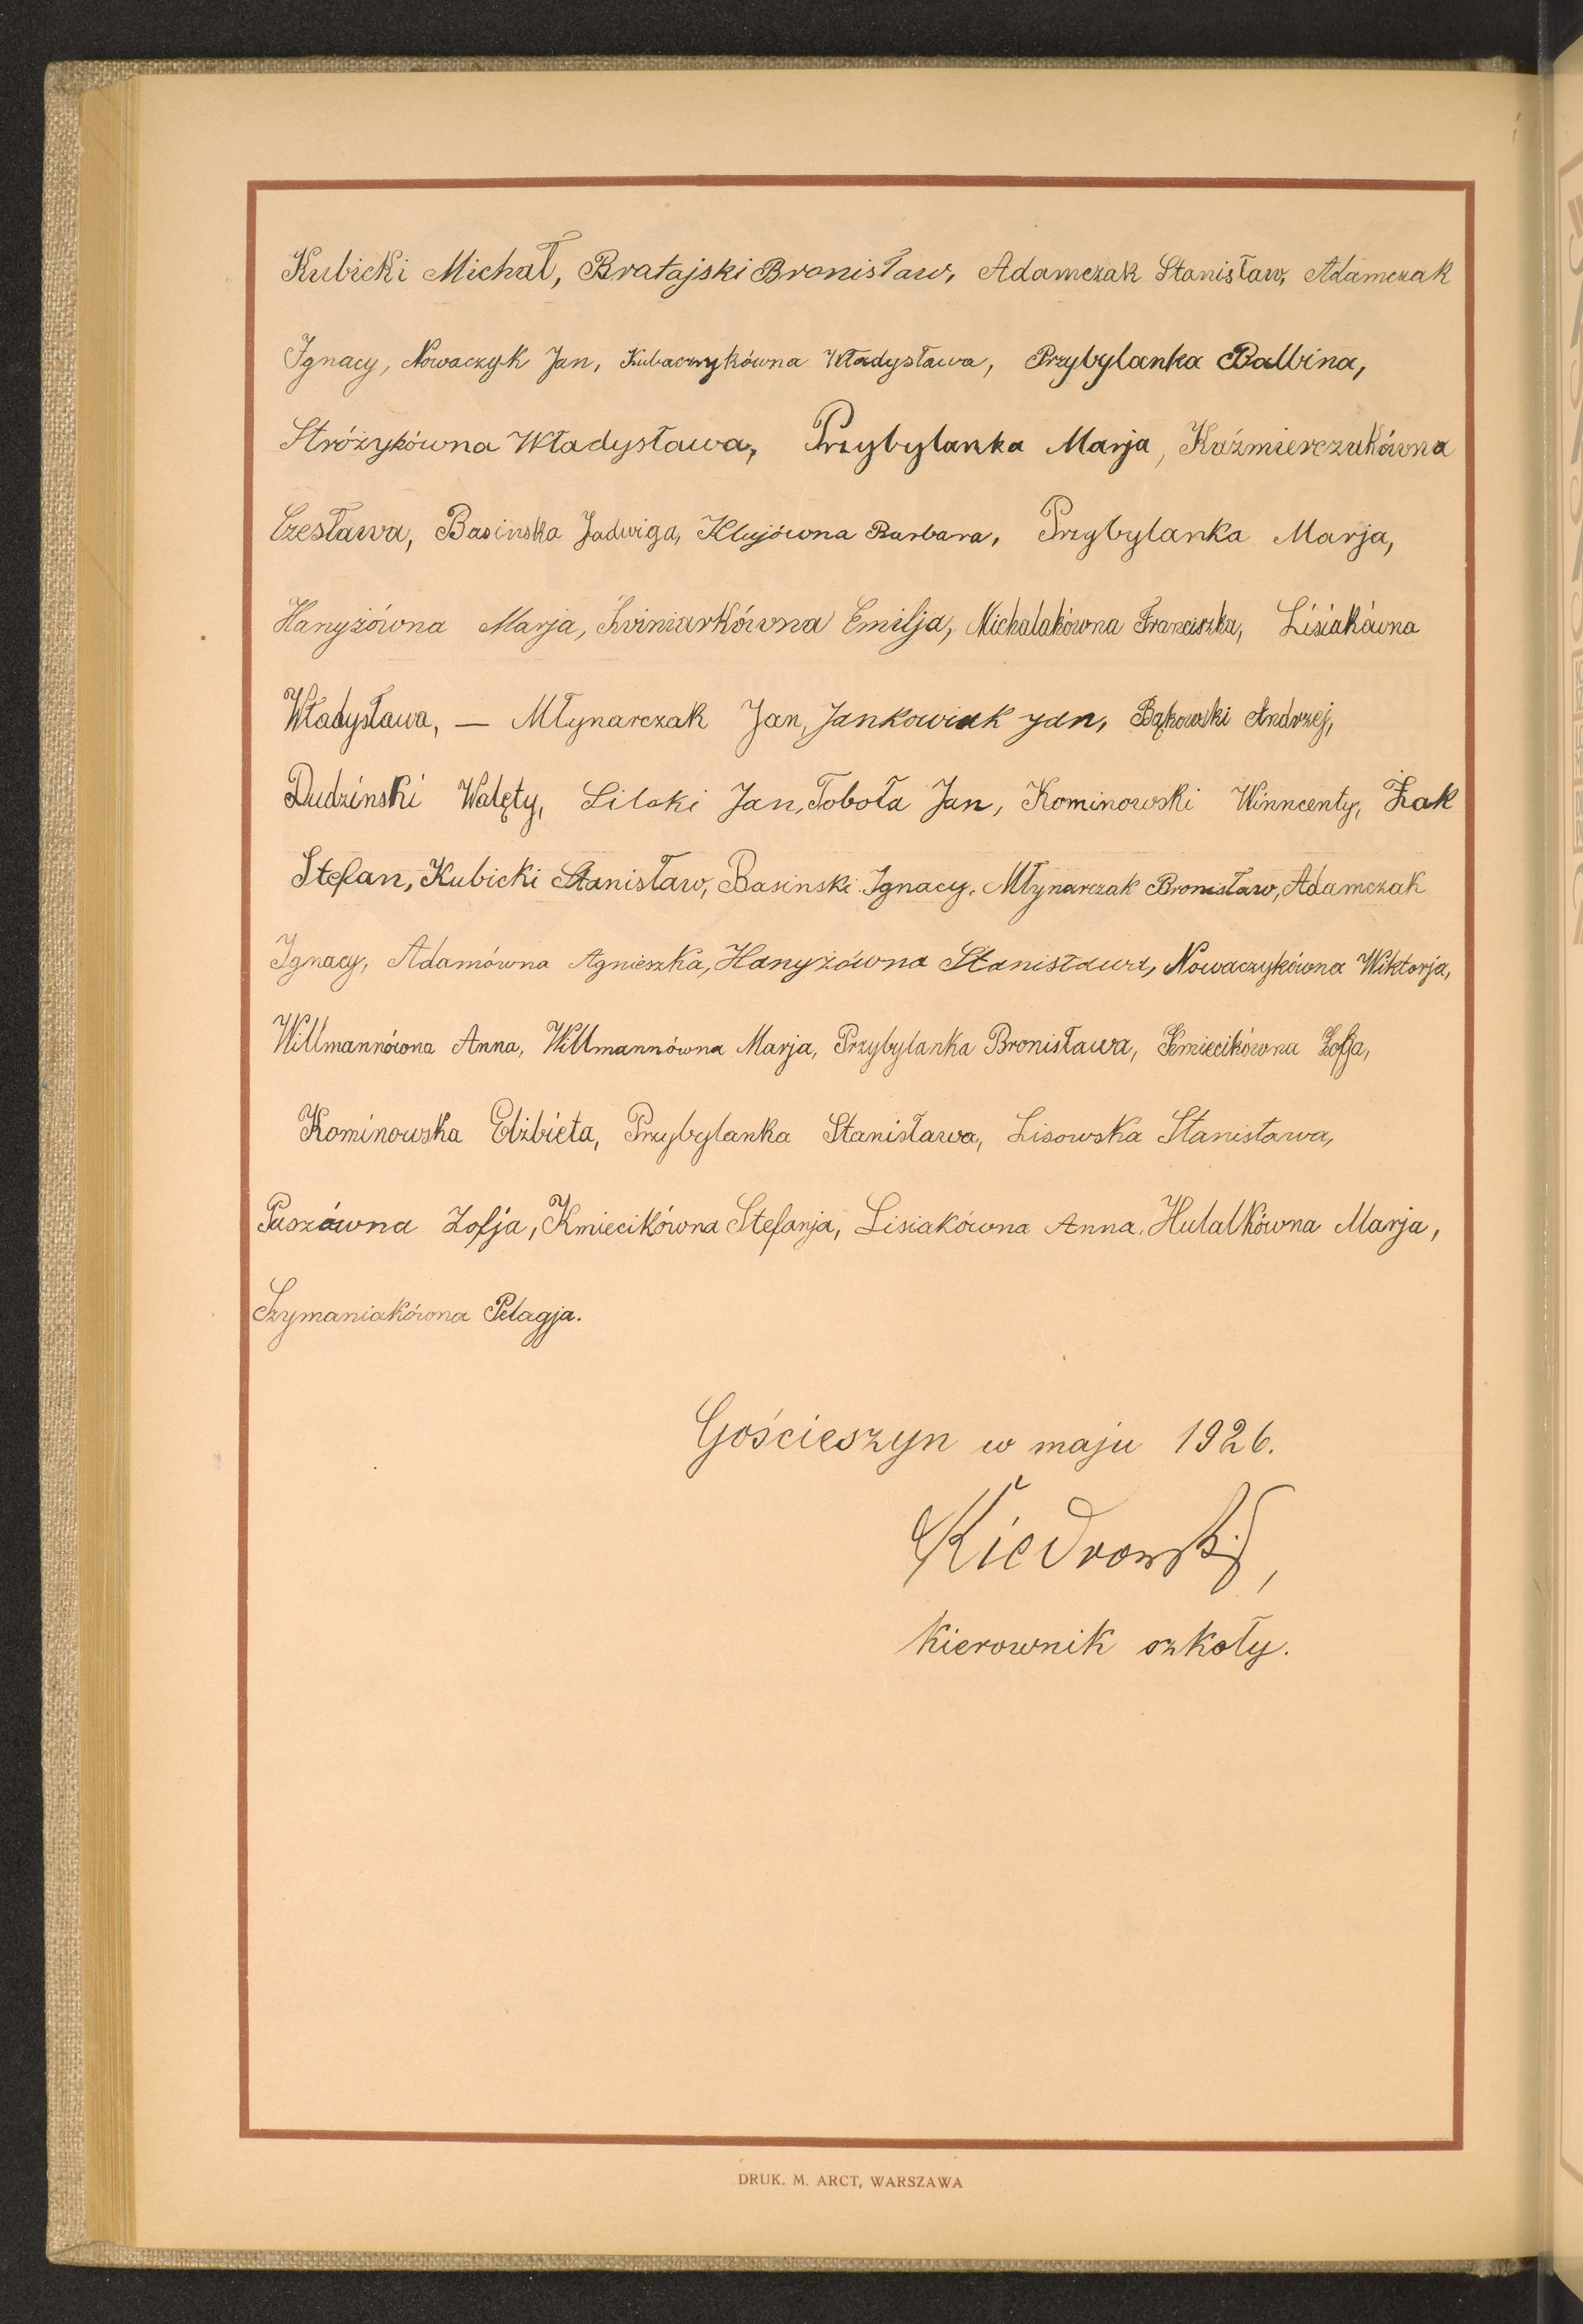 Kubicki Michał, Bratajski Bronisław, Adamczak Stanisław, Adamczak
Ignacy, Nowaczyk Jan, Kubaczykówna Władysława, Przybylanka Balbina,
Stróżykówna Władysława, Przybylanka Marja, Kaźmierczakówna
Czesława, Basinska Jadwiga, Klujówna Barbara, Przybylanka Marja,
Hanyżówna Marja, Emilja, Michalakówna Franciszka, Lisiakówna
Władysława, — Młynarczak Jan, Jankowiak Jan, Bąkowski Andrzej,
Dudzinski Walęty, Silski Jan, Toboła Jan, Kominowski Winncenty, Żak
Stefan, Kubicki Stanisław, Basinski Ignacy, Młynarczak Bronisław, Adamczak
Ignacy, Adamówna Agnieszka, Hanyżówna Stanisława, Nowaczykówna Wiktorja,
Willmannówna Anna, Willmannówna Marja, Przybylanka Bronisława, Kmiecikówna Zofja,
Kominowska Elżbieta, Przybylanka Stanisława, Lisowska Stanisława,
Paszówna Zofja, Kmiecikówna Stefanja, Lisiakówna Anna, Hulalkówna Marja,
Szymaniakówna Pelagja.
Gościeszyn w maju 1926.
Kiedrowski,
kierownik szkoły.
DRUK. M. ARCT, WARSZAWA